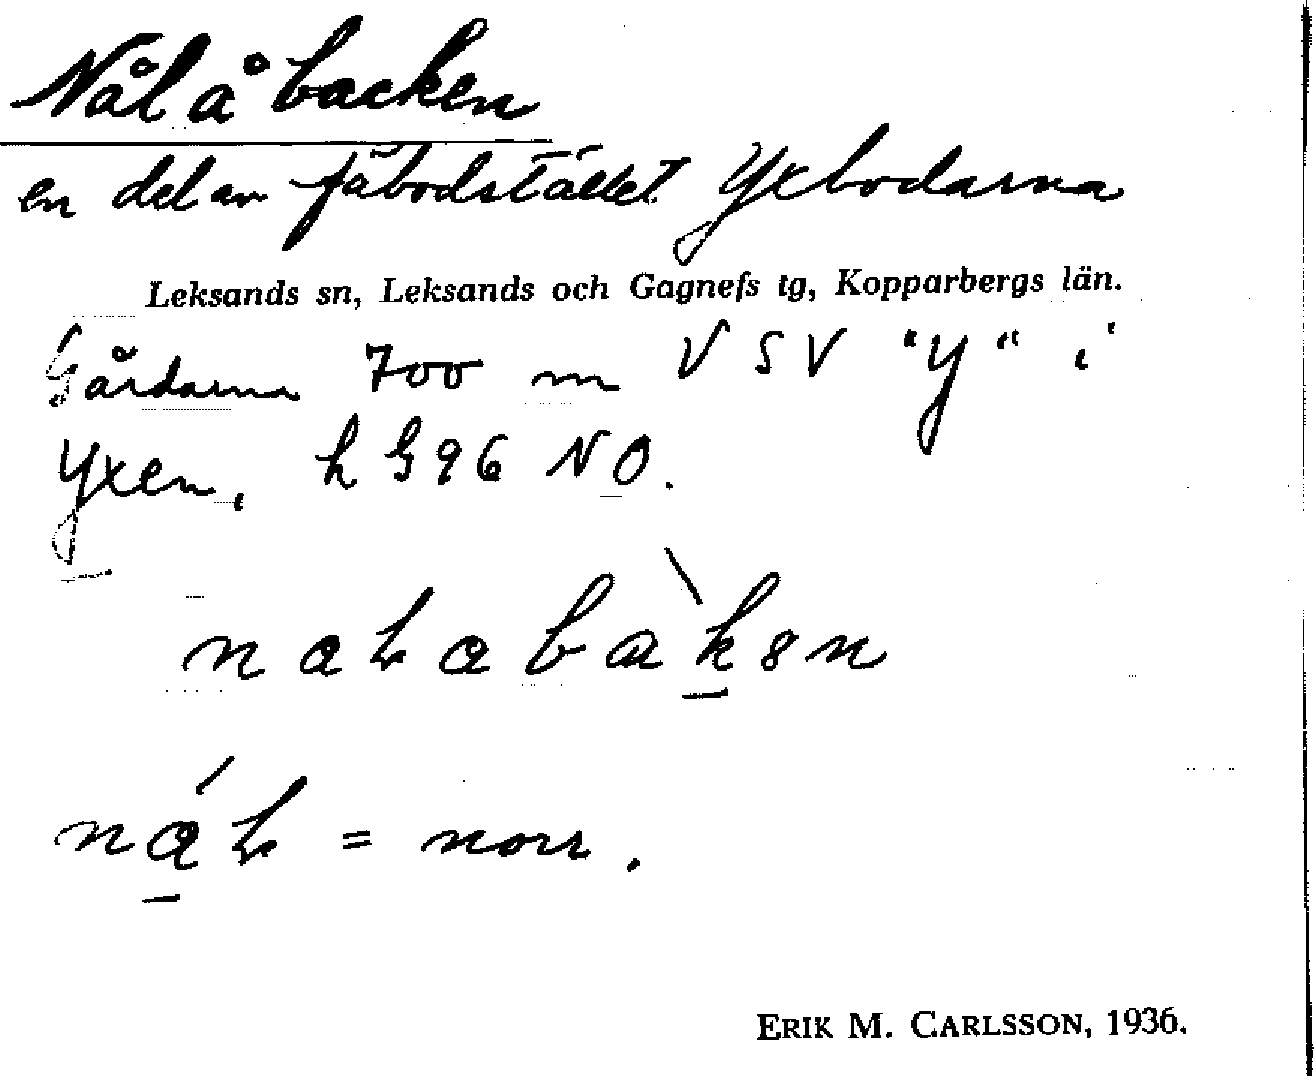 Nålåbacken
en del av fäbodstället Yxbodarna
Leksands sn, Leksands och Gagnefs tg, Kopparbergs län.
Gårdarna 700 m VSV "Y" i
Yxen, h G 96 NO.
nalabakən
nál = norr.
ERIK M. CARLSSON, 1936.